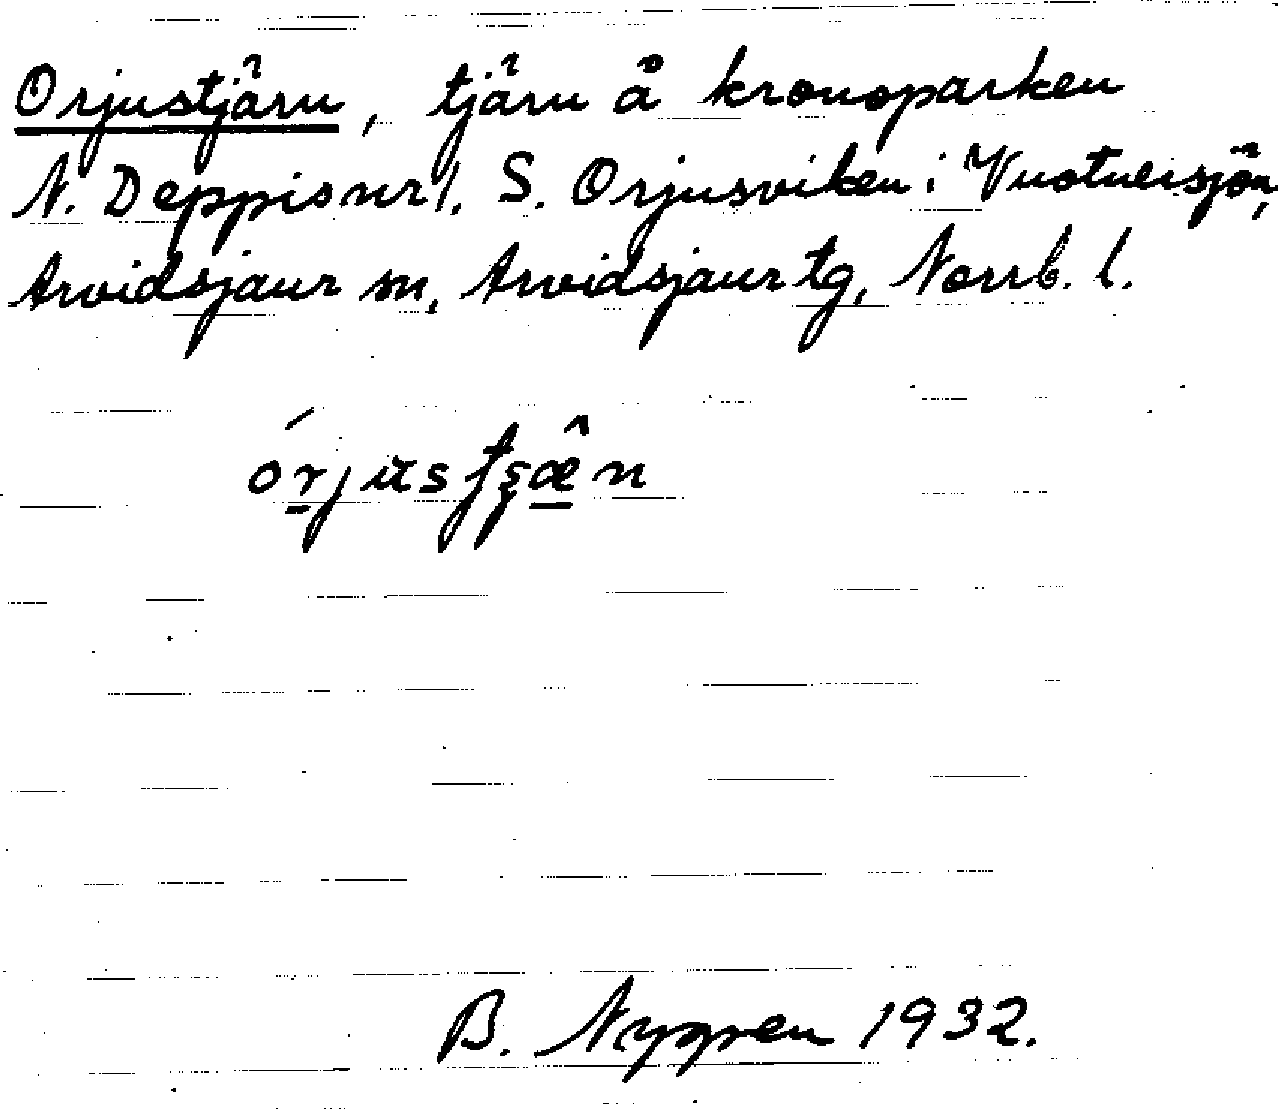 Orjustjärn, tjärn å kronoparken
N. Deppisnrl. S. Orjusviken i Vuotnersjön,
Arvidsjaur sn, Arvidsjaur tg, Norrb. l.
B. Nygren 1932.